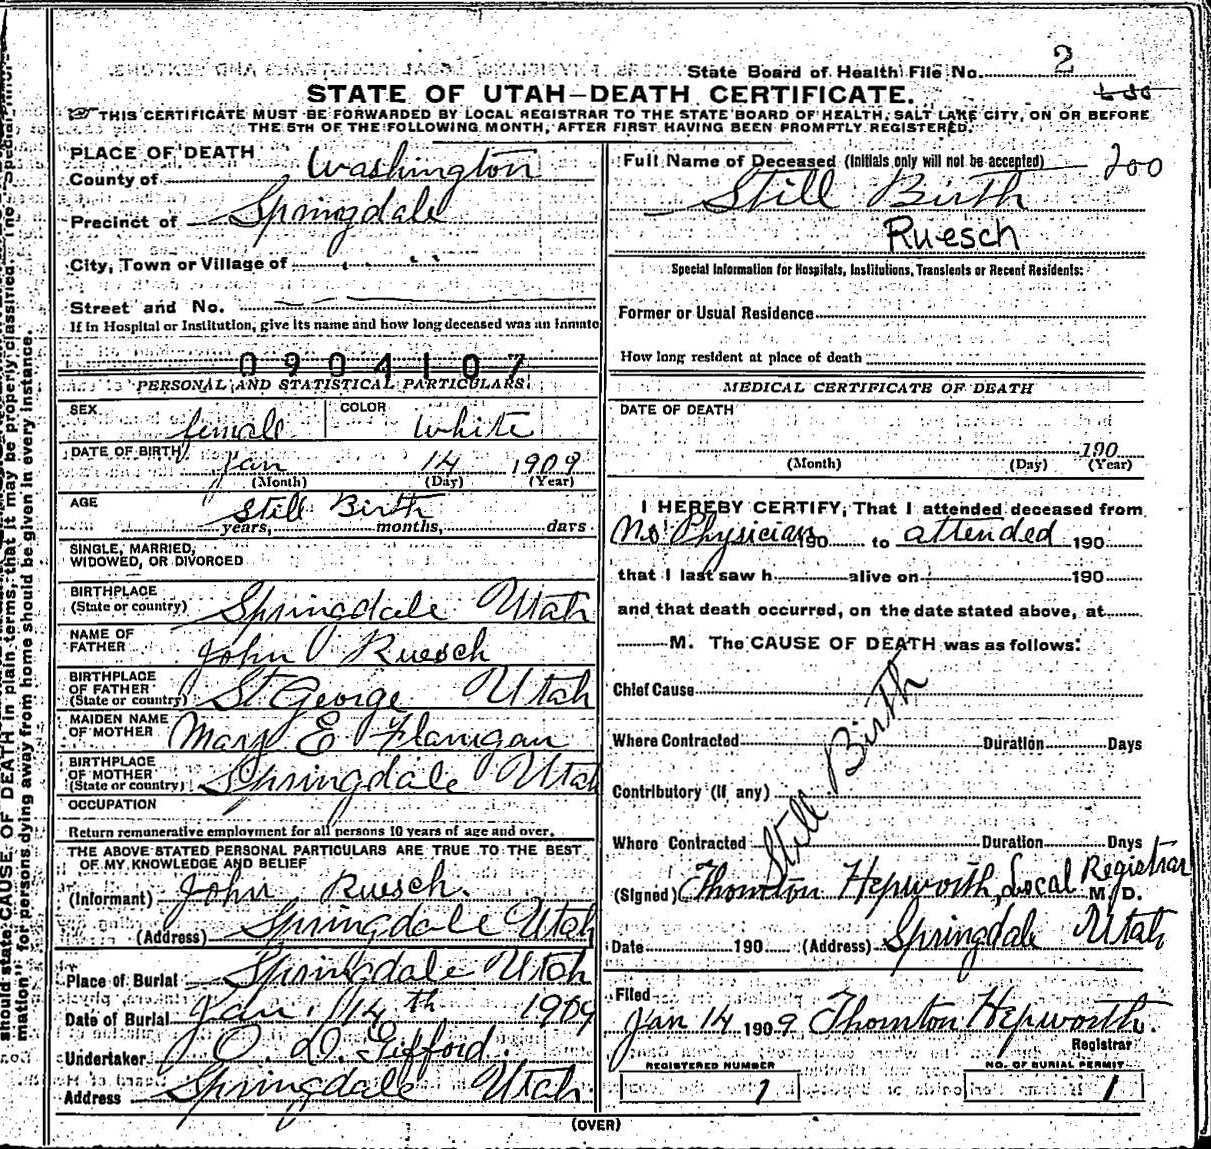 State Board of Health File No. 2
STATE OF UTAH—DEATH CERTIFICATE.
THIS CERTIFICATE MUST BE FORWARDED BY LOCAL REGISTRAR TO THE STATE BOARD OF HEALTH, SALT LAKE CITY, ON OR BEFORE
THE 5TH OF THE FOLLOWING MONTH, AFTER FIRST HAVING BEEN PROMPTLY REGISTERED.
PLACE OF DEATH
County of Washington
Precinct of Springdale
City, Town or Village of " "
Street and No.
If in Hospital or Institution, give its name and how long deceased was an inmate
0904107
PERSONAL AND STATISTICAL PARTICULARS.
SEX female COLOR White
DATE OF BIRTH Jan 14 1909
(Month) (Day) (Year)
AGE Still Birth
years, months, days
SINGLE, MARRIED,
WIDOWED, OR DIVORCED
BIRTHPLACE
(State or country) Springdale Utah
NAME OF
FATHER John Ruesch
BIRTHPLACE
OF FATHER
(State or country) St George Utah
MAIDEN NAME
OF MOTHER Mary E Flanigan
BIRTHPLACE
OF MOTHER
(State or country) Springdale Utah
OCCUPATION
Return remunerative employment for all persons 10 years of age and over.
THE ABOVE STATED PERSONAL PARTICULARS ARE TRUE TO THE BEST
OF MY KNOWLEDGE AND BELIEF
(Informant) John Ruesch.
(Address) Springdale Utah
Place of Burial Springdale Utah
Date of Burial Jan. 14th 1909
Undertaker J. O. D. Gifford.
Address Springdale Utah
Full Name of Deceased (Initials only will not be accepted) 200
Still Birth
Ruesch
Special Information for Hospitals, Institutions, Transients or Recent Residents:
Former or Usual Residence
How long resident at place of death
MEDICAL CERTIFICATE OF DEATH
DATE OF DEATH
190
(Month) (Day) (Year)
I HEREBY CERTIFY, That I attended deceased from
No Physician 190 to attended 190
that I last saw h alive on 190
and that death occurred, on the date stated above, at
M. The CAUSE OF DEATH was as follows:
Chief Cause
Where Contracted Duration Days
Still Birth
Contributory (if any)
Where Contracted Duration Days
(Signed) Thornton Hepworth, Local Registrar M. D.
Date 190 (Address) Springdale Utah
Filed
Jan 14 1909 Thornton Hepworth.
Registrar
REGISTERED NUMBER
1
NO. OF BURIAL PERMIT
1
(OVER)
should state CAUSE OF DEATH in plain terms, that it may be properly classified. The "Special Infor-
mation" for persons dying away from home should be given in every instance.